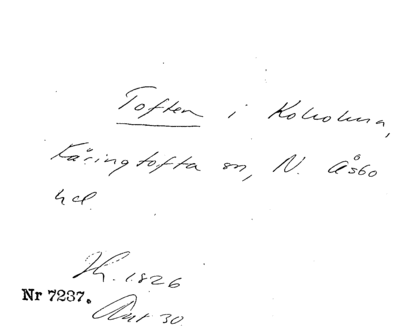 Toften i Koholma,
Färingtofta sn, N. Åsbo
hd.
Jh. 1826
Nr 7237.
Ant 30